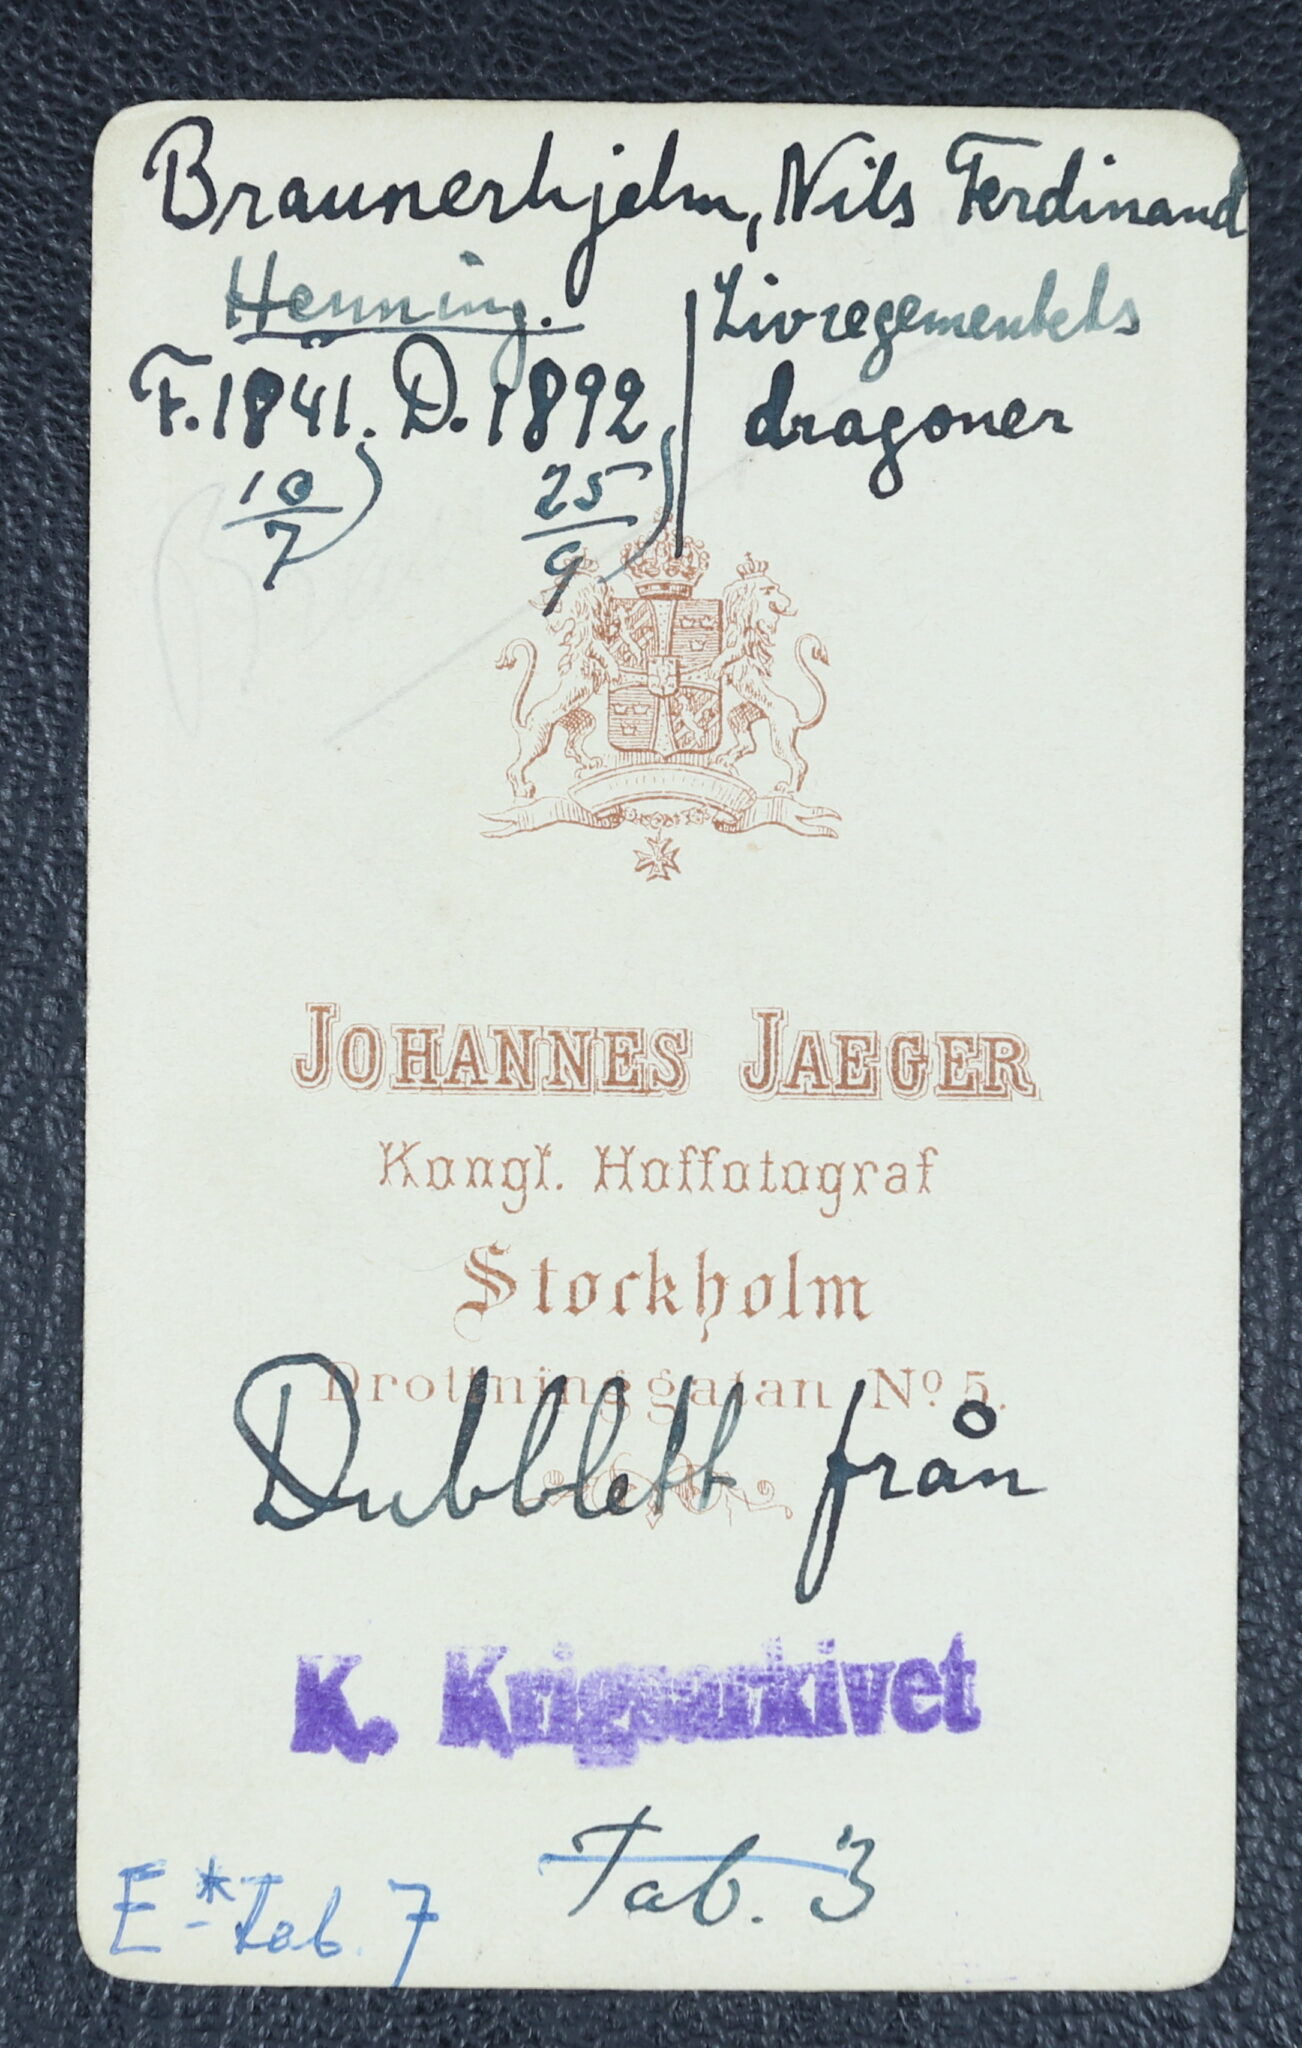 Braunerhjelm, Nils Ferdinand
Henning.
F. 1841. D. 1892.
10/7) 25/9)
Livregementets
dragoner
JOHANNES JAEGER
Kongl. Hoffotograf
Stockholm
Drottninggatan No. 5.
Dubblett från
K. Krigsarkivet
Tab. 3
E * Tab. 7